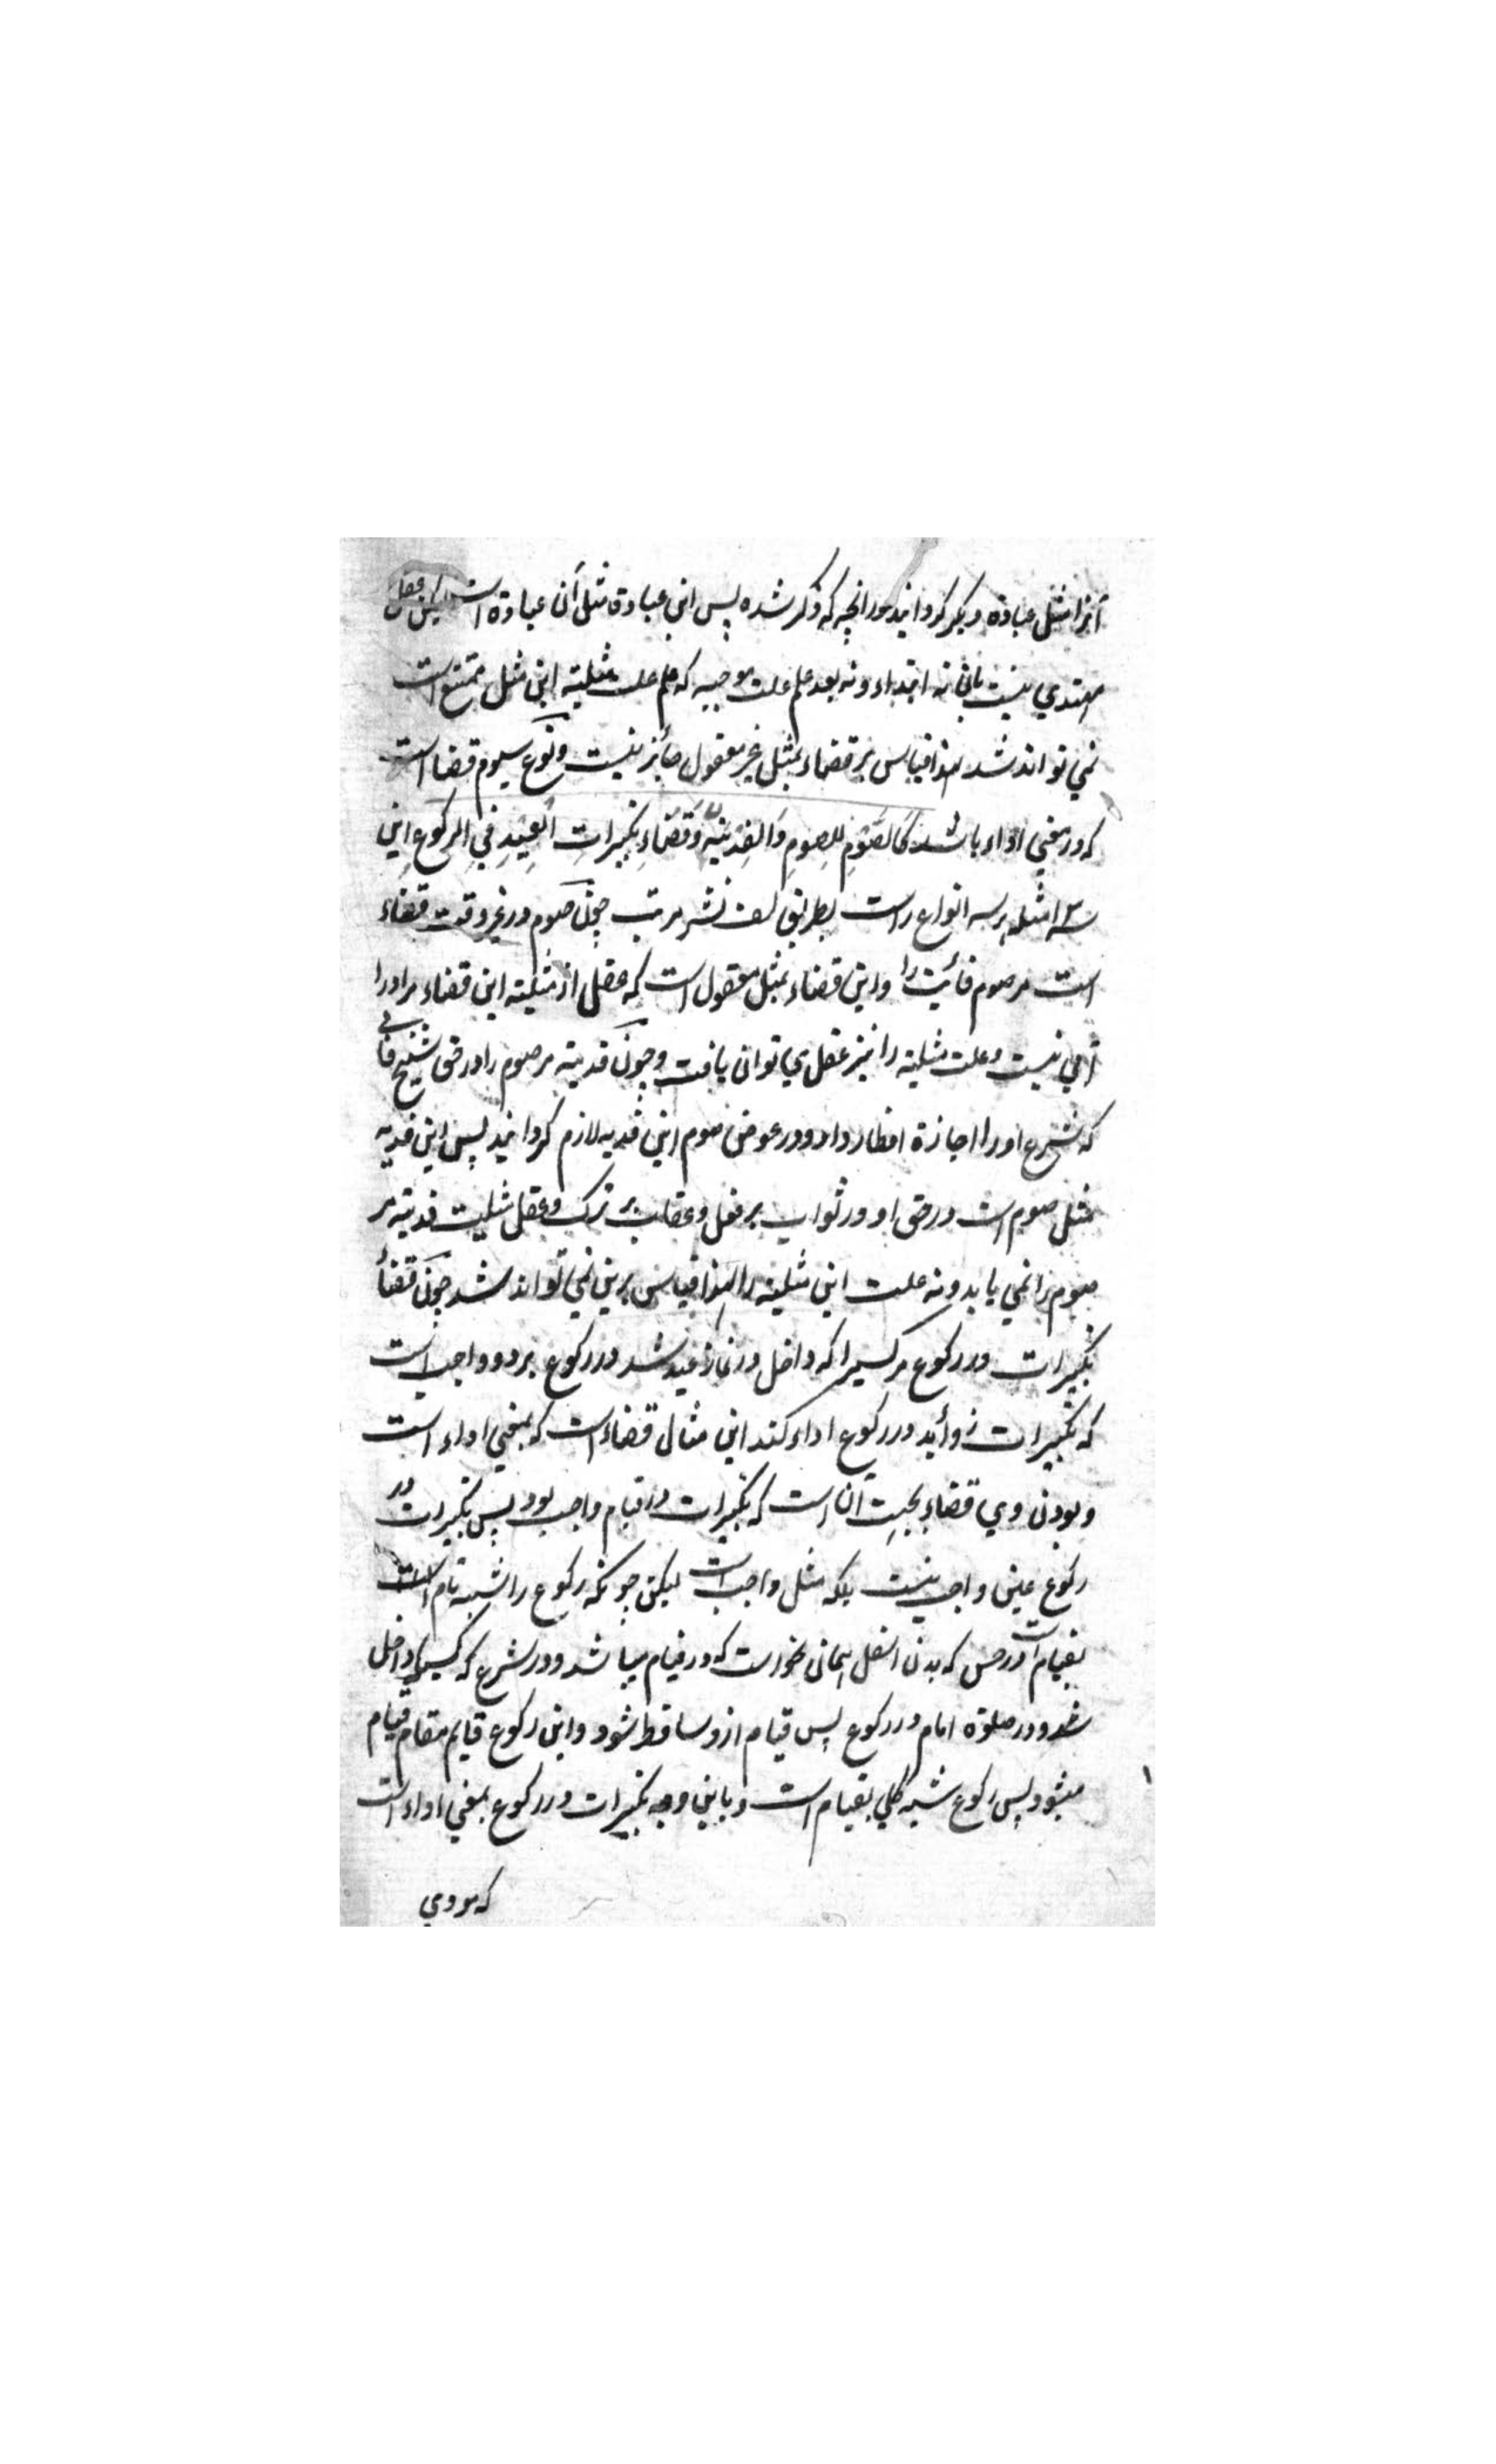 آنرا مثل عبادة دیگر کردانید در انچه که ذکر شده پس این عبادة مثل آن عبادة است لیکن عقل
مهتدي نیست بآن نه ابتداء و نه بعد علم علت موجبه که علم علت مثلیة این مثل ممتنع است
نمي تواند شد لهذا قیاس بر قضاء بمثل غیر معقول جائز نیست ونوع سیوم قضا است
که در معني اداء باشد کَالصَّومِ لِلصومِ وَالفِدْيَةِ وَقَضَاءِ تکبیراتِ العِیْدِ فِي الرکوعِ این
سه امثله بر سه انواع راست بطریق لف نشر مرتب چون صوم در غیر وقت قضاء
است مر صوم فائیت را واین قضاء بمثل معقول است که عقل از مثلیة این قضاء مر ادا را
آبي نیست وعلت مثلیة را نیز عقل مي تواند یافت وچون فدیة مر صوم را در حق شیخ فاني
که شرع او را اجازة افطار داد و در عوض صوم این فدیه لازم کردانید پس این فدیه
مثل صوم است در حق او در ثواب بر فعل وعقاب بر ترک وعقل مثلیت فدیة مر
صوم را نمي یابد و نه علت این مثلیة را لهذا قیاس برین نمي تواند شد چون قضأ
تکبیرات در رکوع مر کسیرا که داخل در نماز عید شد در رکوع برو واجب است
که تکبیرات زوأید در رکوع اداء کند این مثال قضاء است که بمعني اداء است
وبودن وي قضاء بجهت آن است که تکبیرات در قیام واجب بود پس تکبیرات در
رکوع عین واجب نیست بلکه مثل واجب است لیکن چونکه رکوع را شبه تام است
بقیام است در حس که بدن اسفل همان طور است که در قیام میباشد و در شرع که کسیکه داخل
شد در صلوة امام در رکوع پس قیام ازو ساقط شود واین رکوع قایم مقام قیام
میشود پس رکوع شبه کلي بقیام است وباین وجه تکبیرات در رکوع بمعني اداء است
که مودي